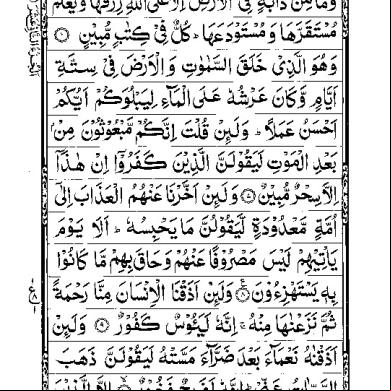 وَمَا مِنْ دَآبَّةٍ فِى الْاَرْضِ اِلَّا عَلَى اللّٰهِ رِزْقُهَا وَيَعْلَمُ
مُسْتَقَرَّهَا وَمُسْتَوْدَعَهَا ؕ كُلٌّ فِىْ كِتٰبٍ مُّبِيْنٍ ۝٦
وَهُوَ الَّذِىْ خَلَقَ السَّمٰوٰتِ وَالْاَرْضَ فِىْ سِتَّةِ
اَيَّامٍ وَّكَانَ عَرْشُهٗ عَلَى الْمَآءِ لِيَبْلُوَكُمْ اَيُّكُمْ
اَحْسَنُ عَمَلًا ؕ وَلَئِنْ قُلْتَ اِنَّكُمْ مَّبْعُوْثُوْنَ مِنْۢ
بَعْدِ الْمَوْتِ لَيَقُوْلَنَّ الَّذِيْنَ كَفَرُوْٓا اِنْ هٰذَآ
اِلَّا سِحْرٌ مُّبِيْنٌ ۝٧ وَلَئِنْ اَخَّرْنَا عَنْهُمُ الْعَذَابَ اِلٰٓى
اُمَّةٍ مَّعْدُوْدَةٍ لَّيَقُوْلُنَّ مَا يَحْبِسُهٗ ؕ اَلَا يَوْمَ
يَاْتِيْهِمْ لَيْسَ مَصْرُوْفًا عَنْهُمْ وَحَاقَ بِهِمْ مَّا كَانُوْا
بِهٖ يَسْتَهْزِءُوْنَ ۝٨ وَلَئِنْ اَذَقْنَا الْاِنْسَانَ مِنَّا رَحْمَةً
ثُمَّ نَزَعْنٰهَا مِنْهُ ۚ اِنَّهٗ لَيَئُوْسٌ كَفُوْرٌ ۝٩ وَلَئِنْ
اَذَقْنٰهُ نَعْمَآءَ بَعْدَ ضَرَّآءَ مَسَّتْهُ لَيَقُوْلَنَّ ذَهَبَ